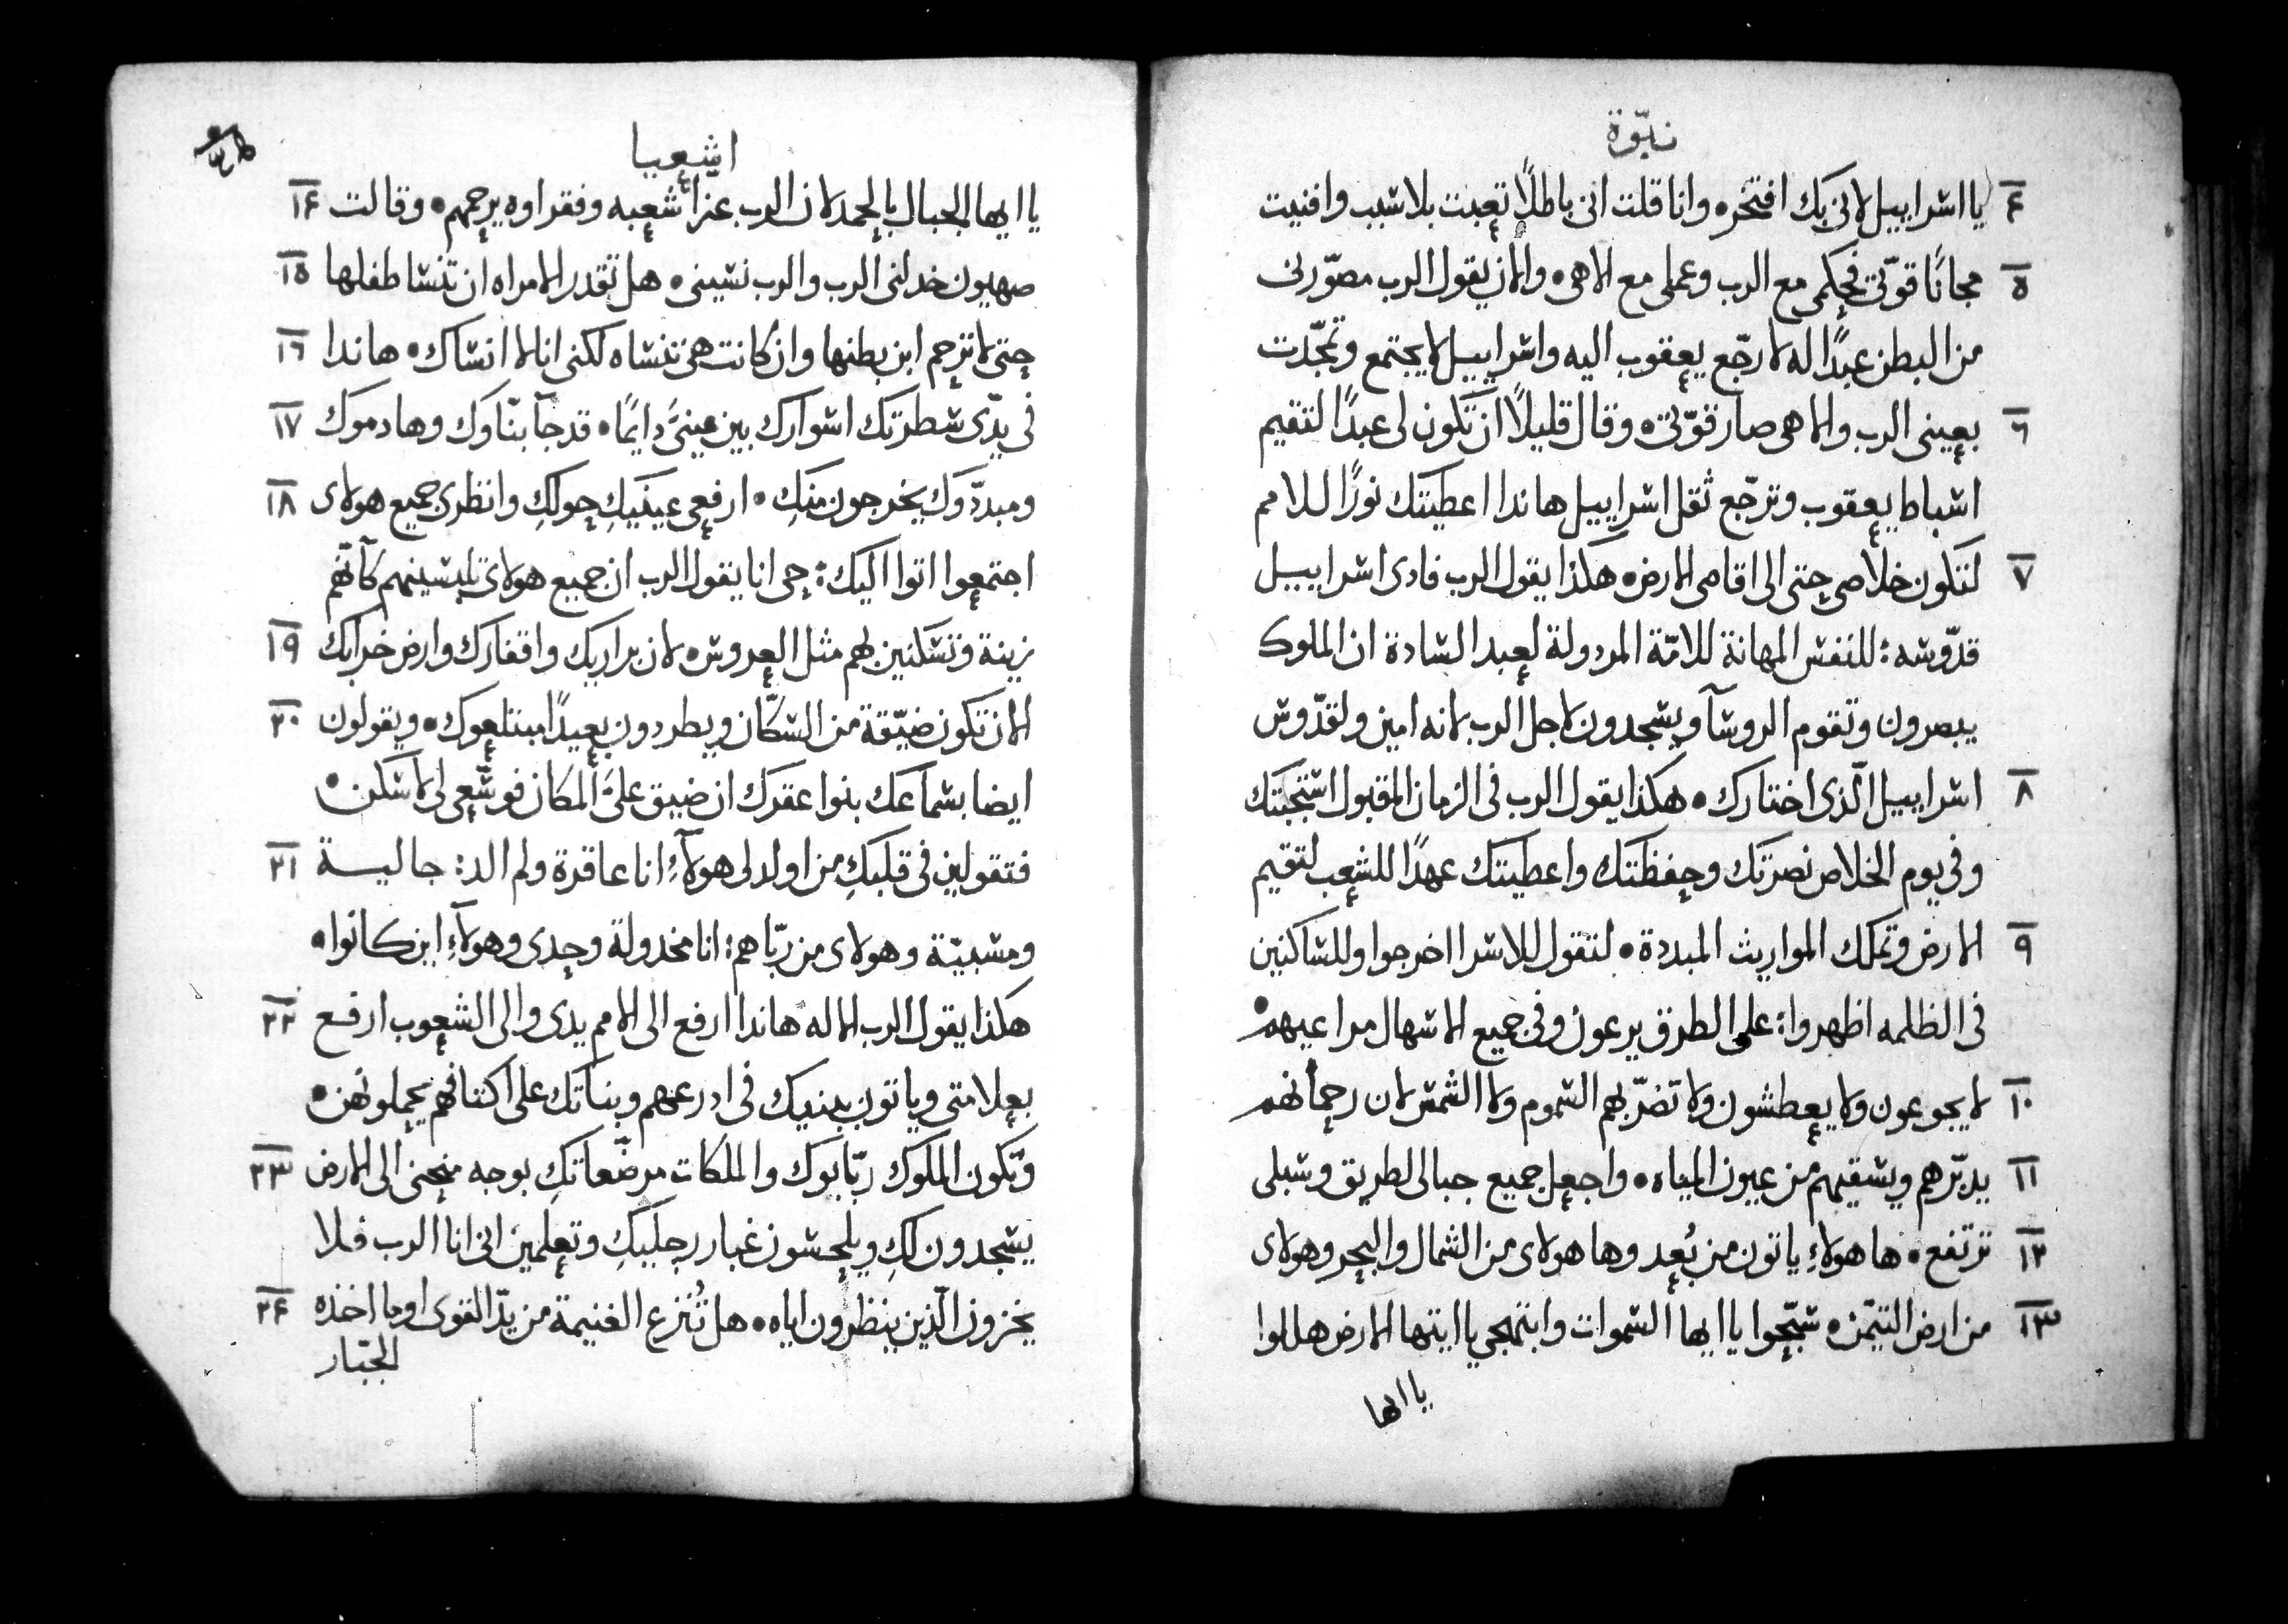 نبّوة
٤ يا اسراييل لاني بك افتخر • وانا قلت اني باطلاً تعبت بلا سبب وافنيت
٥ مجانًا قوّتي فحكمي مع الرب وعملي مع الاهي • والان يقول الرب مصوّرني
من البطن عبدًا له لارجّع يعقوب اليه واسراييل لا يجتمع وتمجّدت
٦ بعيني الرب والاهي صار قوّتي • وقال قليلاً ان تكون لي عبدًا لتقيم
اسباط يعقوب وترجّع ثقل اسراييل هاندا اعطيتك نورًا للامم
٧ لتكون خلاصي حتى الى اقاصي الارض • هكذا يقول الرب فادي اسراييل
قدّوسه : للنفس المهانة للامّة المردولة لعبد السادة ان الملوك
يبصرون وتقوم الروسآ ويسجدون لاجل الرب لانه امين ولقدّوس
٨ اسراييل الّذي اختارك • هكذا يقول الرب في الزمان المقبول استجبتك
وفي يوم الخلاص نصرتك وحفظتك واعطيتك عهدًا للشعب لتقيم
٩ الارض وتملك المواريث المبددة • لتقول للاسرا اخرجوا وللساكنين
في الظلمه اظهروا : على الطرق يرعون وفي جميع الاسهال مراعيهم •
١٠ لا يجوعون ولا يعطشون ولا تضرّبهم السموم ولا الشمس لان رحمانهم
١١ يدبّرهم ويسقيهم من عيون المياه • واجعل جميع جبالي لطريق وسبلي
١٢ ترتفع • ها هولاءِ ياتون من بُعد وها هولاي من الشمال والبحر وهولاي
١٣ من ارض التيمّن • سبّحوا يا ايها السموات وابتهجي يا ايتها الارض هللوا
يا ايها
اشعيا
يا ايها الجبال بالحمد لان الرب عزّا شعبه وفقراوه يرحمهم • وقالت ١٤
صهيون خدلني الرب والرب نسيني • هل تقدر الامراه ان تنسا طفلها ١٥
حتى لا ترحم ابن بطنها وان كانت هي تنساه لكني انا لا انساك • هاندا ١٦
في يدّي سطرتك اسوارك بين عينيَّ دايمًا • قد جآ بنّاوك وهادموك ١٧
ومبددّوك يخرجون منكِ • ارفعي عينيكِ حولكِ وانظري جميع هولاي ١٨
اجتمعوا اتوا اليك : حي انا يقول الرب ان جميع هولاي تلبسينهم كآنّهم
زينة وتسكنين بهم مثل العروس • لان براريك واقفارك وارض خرابك ١٩
الان تكون ضيّقة من السكّان ويطردون بعيدًا مبتلعوك • ويقولون ٢٠
ايضا بسماعك بنوا عقرك ان ضيق عليَّ المكان فوسّعي لي لاسكن •
فتقولين في قلبكِ من اولد لي هولآءِ انا عاقرة ولم الد : جاليــة ٢١
ومسبيّة وهولاي من ربّاهم : انا مخدولة وحدي وهولآءِ اين كانوا •
هكذا يقول الرب الاله هاندا ارفع الى الامم يدي والى الشعوب ارفع ٢٢
بعلامتي وياتون ببنيك في ادرعهم وبناتك على اكتافهم يحملونهن •
وتكون الملوك ربّابوك والملكات مرضّعاتكِ بوجه منحني الى الارض ٢٣
يسجدون لكِ ويلحسون غبار رجليكِ وتعلمين اني انا الرب فلا
يخزون الّذين ينظرون اياه • هل تُنزع الغنيمة من يدّ القوي او ما اخذه ٢٤
الجبّار